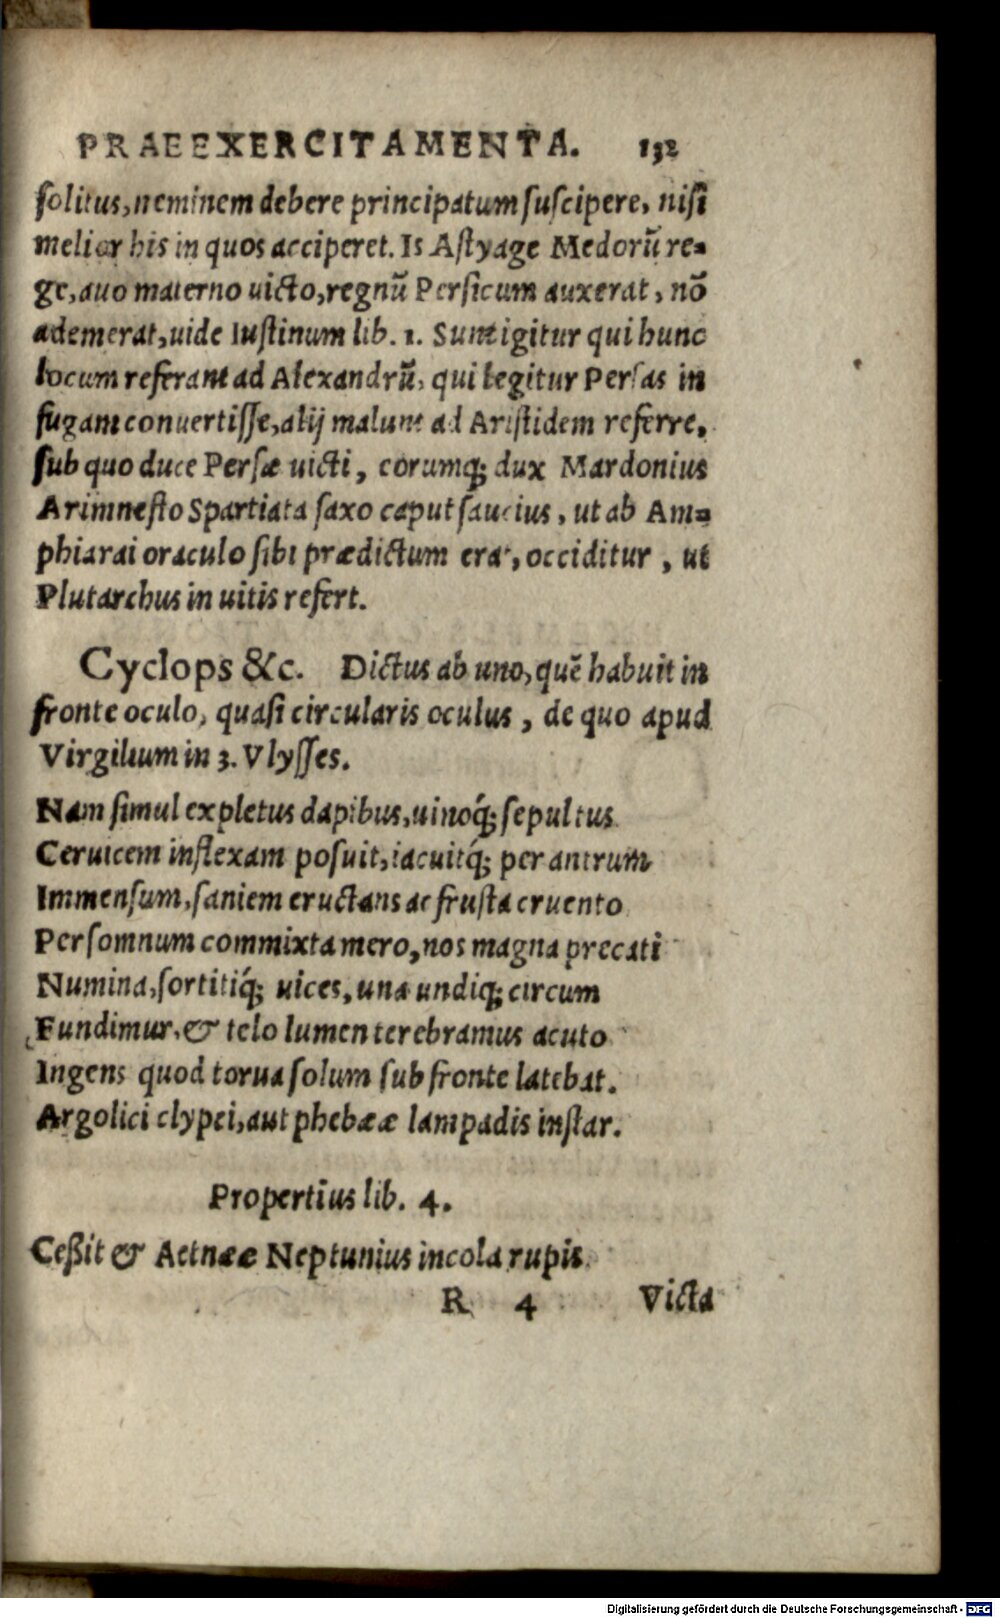 PRAEEXERCITAMENTA. 132
ſolitus, neminem debere principatum ſuſcipere, niſi
melior his in quos acciperet. Is Aſtyage Medorũ re-
ge, auo materno uicto, regnũ Perſicum auxerat, nõ
ademerat, uide Iuſtinum lib. 1. Sunt igitur qui hunc
locum referant ad Alexandrũ, qui legitur Perſas in
fugam conuertiſſe, alij malunt ad Ariſtidem referre,
ſub quo duce Perſæ uicti, eorumq́; dux Mardonius
Arimneſto Spartiata ſaxo caput ſaucius, ut ab Am-
phiarai oraculo ſibi prædictum erat, occiditur, ut
Plutarchus in uitis refert.
Cyclops &c. Dictus ab uno, quẽ habuit in
fronte oculo, quaſi circularis oculus, de quo apud
Virgilium in 3. Vlyſſes.
Nam ſimul expletus dapibus, uinoq́; ſepultus
Ceruicem inflexam poſuit, iacuitq́; per antrum
Immenſum, ſaniem eructans ac fruſta cruento
Per ſomnum commixta mero, nos magna precati
Numina, ſortitiq́; uices, una undiq; circum
Fundimur, & telo lumen terebramus acuto
Ingens quod torua ſolum ſub fronte latebat.
Argolici clypei, aut phebææ lampadis inſtar.
Propertius lib. 4.
Ceßit & Aetnææ Neptunius incola rupis
R 4 Victa
Digitalisierung gefördert durch die Deutsche Forschungsgemeinschaft - DFG